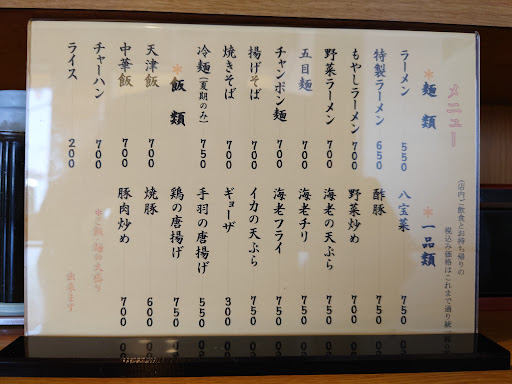 メニュー
(店内ご飲食とお持ち帰りの
税込み価格はこれまで通り統
＊麺類
ラーメン 550
特製ラーメン 650
もやしラーメン 700
野菜ラーメン 700
五目麺 700
チャンポン麺 700
揚げそば 700
焼きそば 700
冷麺(夏期のみ) 750
＊飯類
天津飯 700
中華飯 700
チャーハン 700
ライス 200
＊一品類
八宝菜 750
酢豚 750
野菜炒め 700
海老の天ぷら 750
海老チリ 750
海老フライ 750
イカの天ぷら 750
ギョーザ 300
手羽の唐揚げ 550
鶏の唐揚げ 750
焼豚 600
豚肉炒め 700
大盛り
出来ます